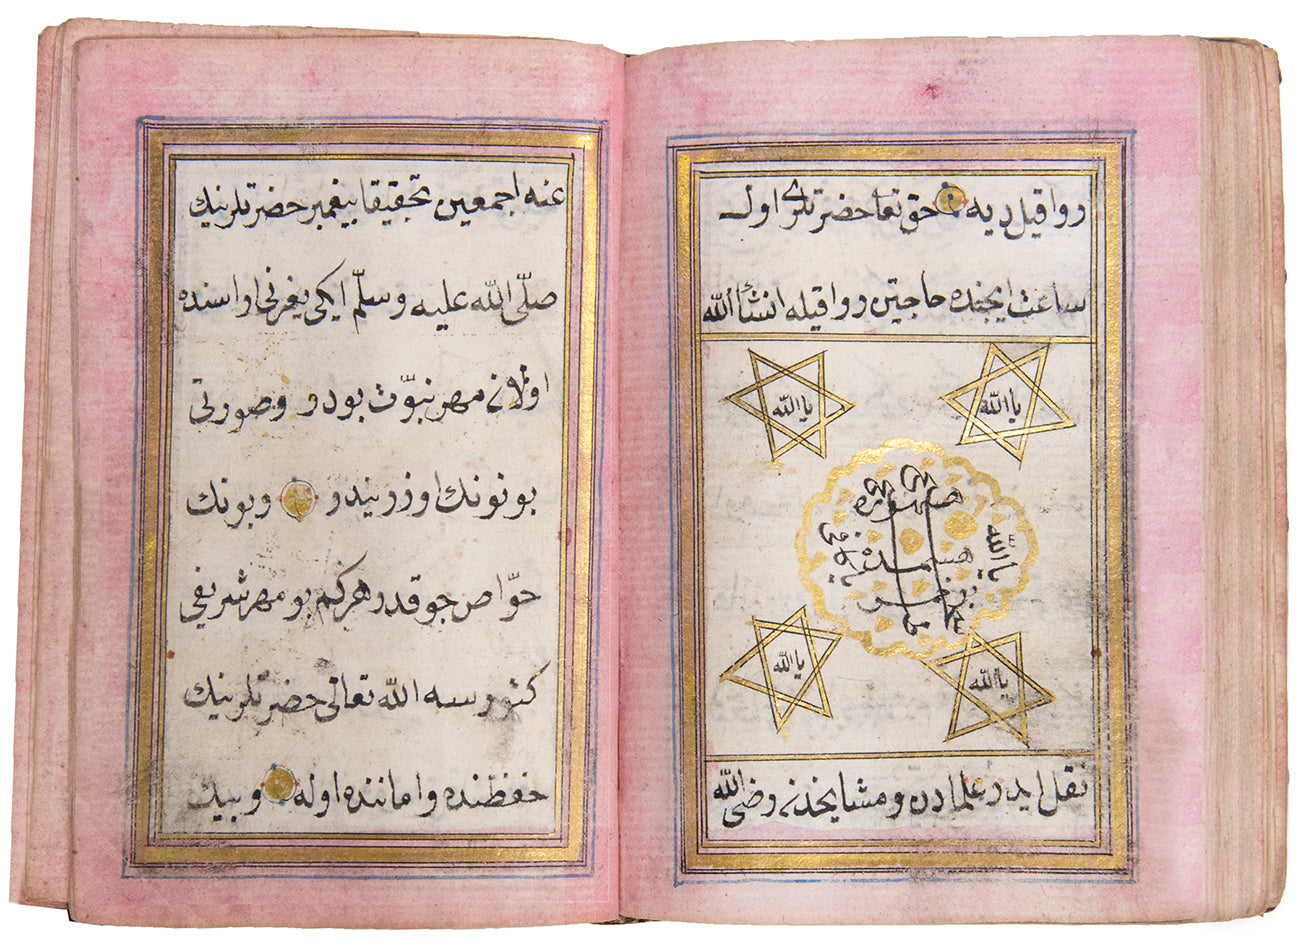 روا قيل ديه حق تعا حضرتلرى اول
ساعت ايچنده حاجتين روا قيله انشاا الله
يا الله
يا الله
يا الله
يا الله
يا الله
نقل ايدر علمادن و مشايخدن رضى الله
عنه اجمعين تحقيقا پيغمبر حضرتلرينك
صلّى الله عليه وسلّم ايكى يغرنى اراسنده
اولان مهر نبوّت بودر و صورتى
بونونك اوزريندر و بونك
خوّاص چوقدر هركم بو مهر شريفى
كتورسه الله تعالى حضرتلرينك
حفظنده و اماننده اوله و بيك